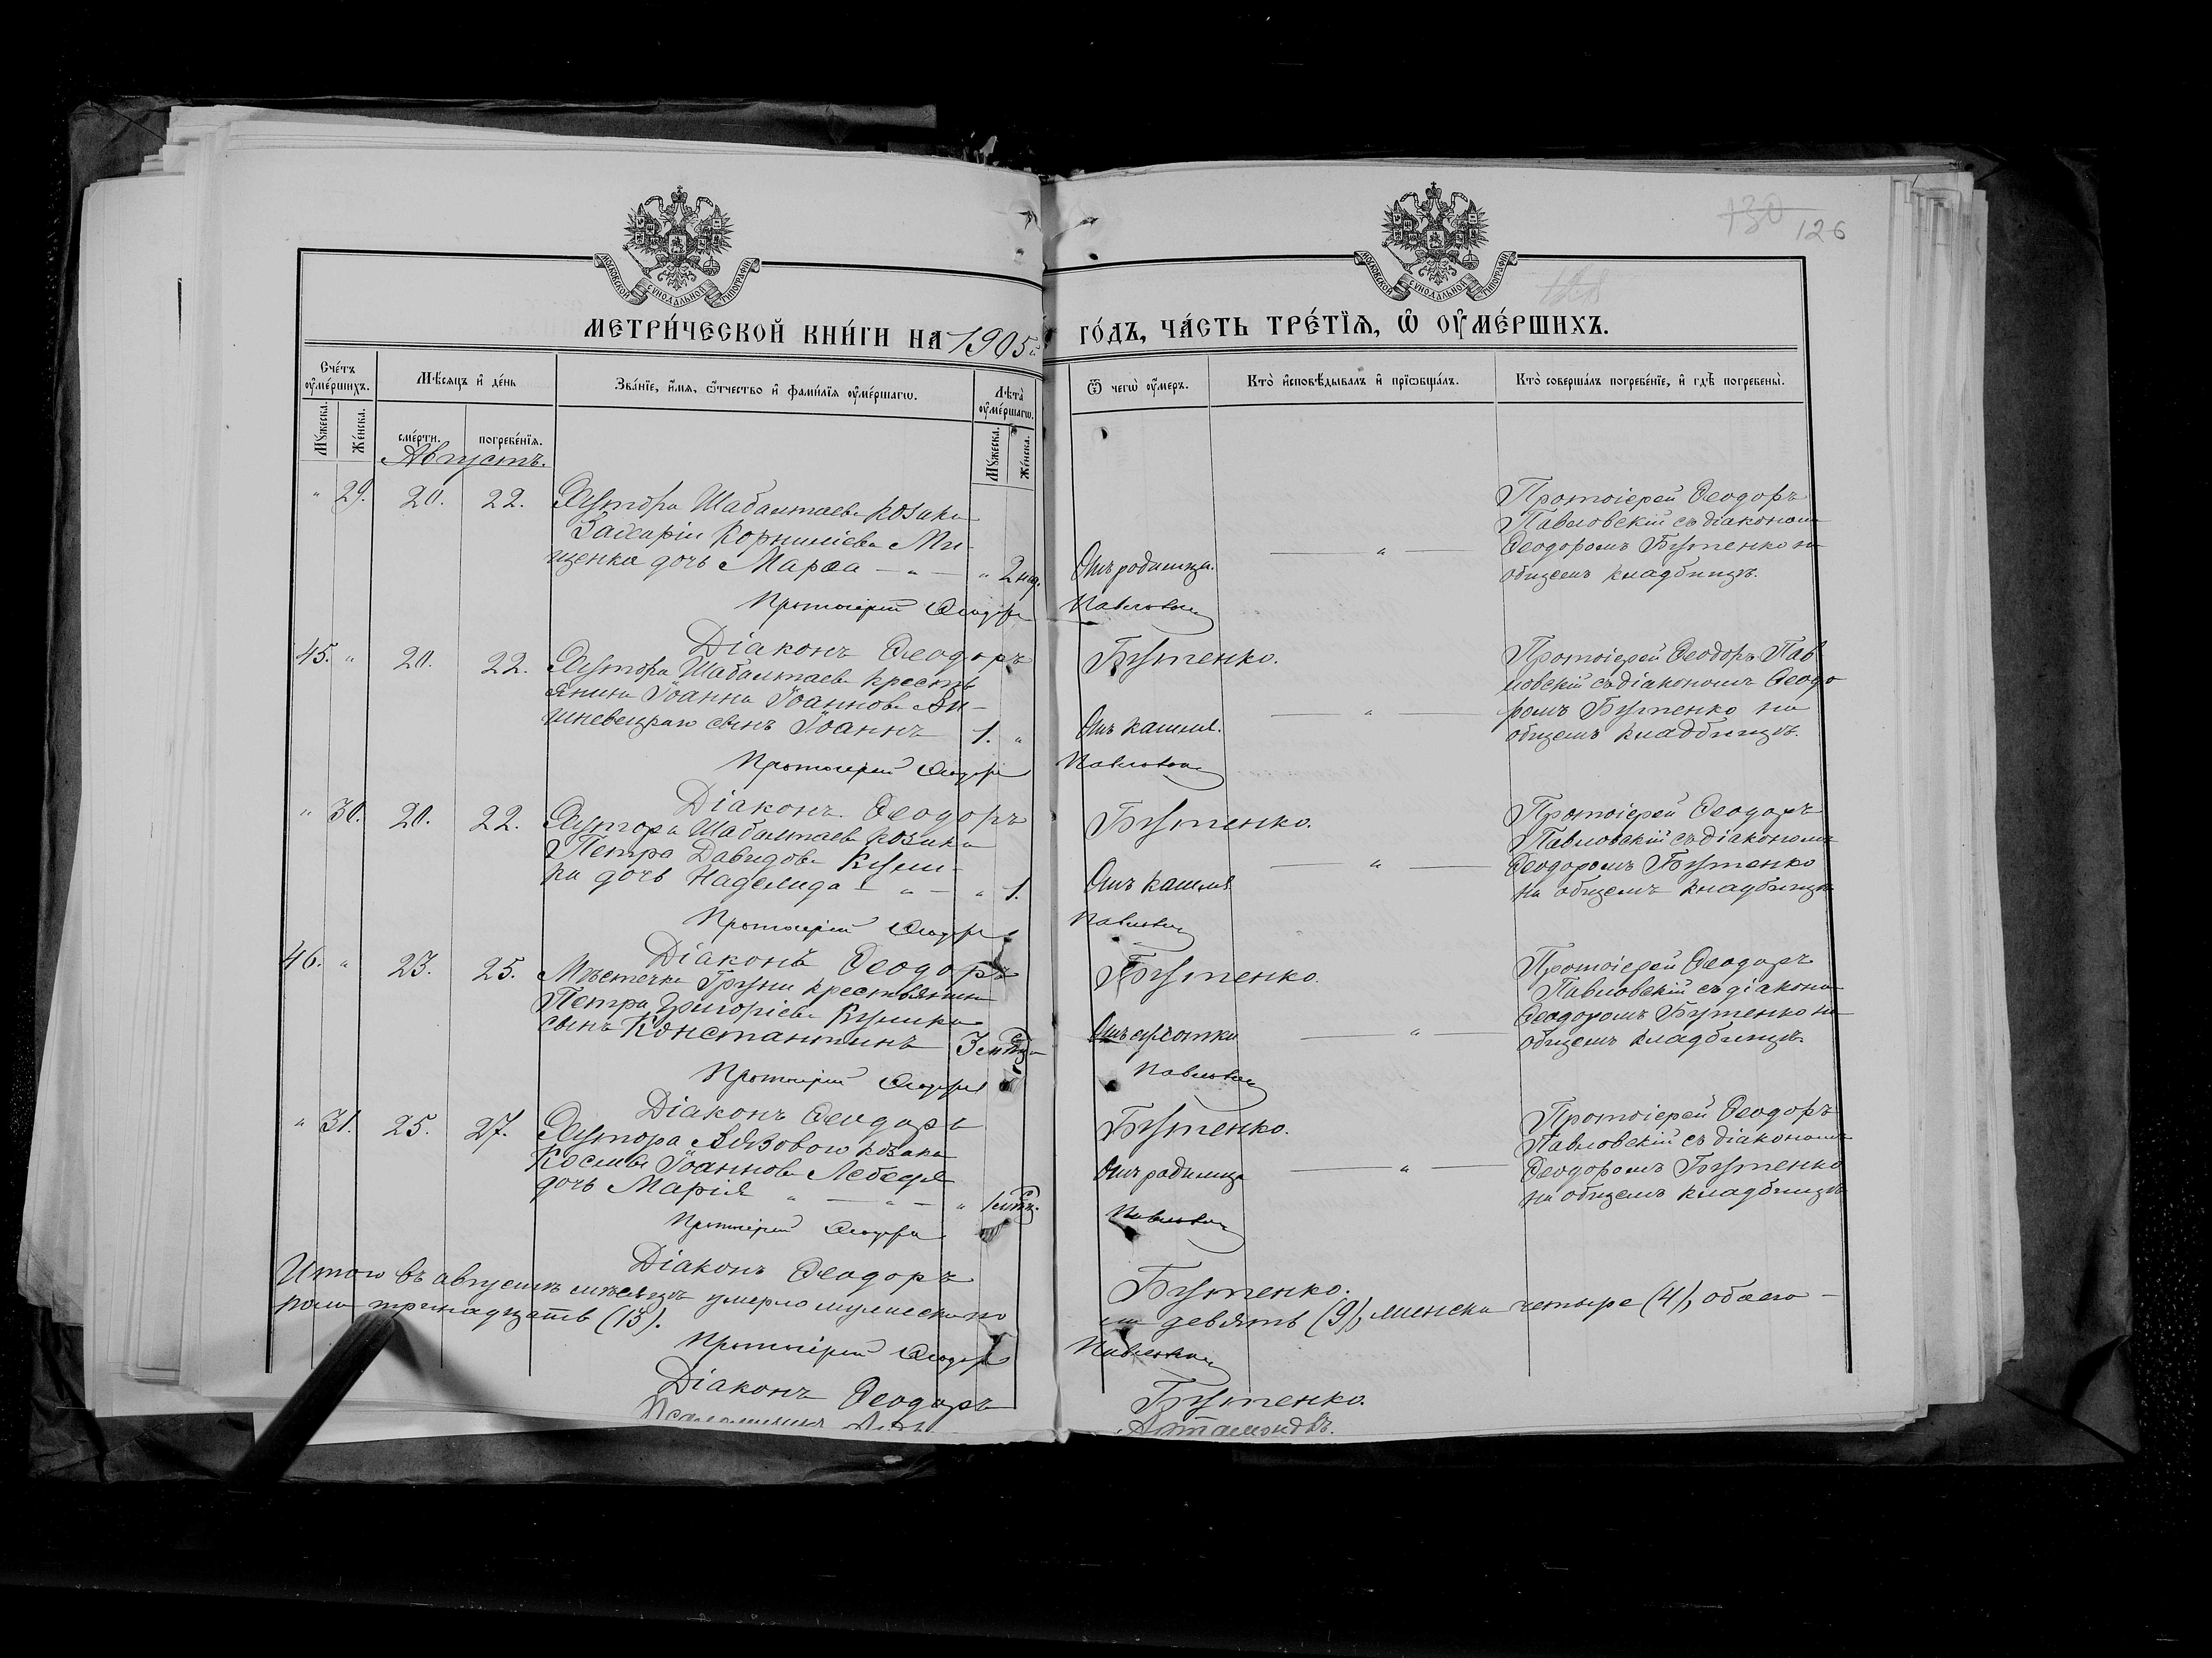 130 126
МОСКОВСКОЙ СѴНОДАЛЬНОЙ ТИПОГРАФІИ
МОСКОВСКОЙ СѴНОДАЛЬНОЙ ТИПОГРАФІИ
МЕТРИ́ЧЕСКОЙ КНИ́ГИ НА 1905й ГО́ДЪ, ЧА́СТЬ ТРЕ́ТЇѦ, Ѡ҆ ОУ҆МЕ́РШИХЪ.
Сче́тъ оу҆ме́ршихъ.
Мꙋ́жеска.
Же́нска.
Мѣ́сѧцъ и҆ де́нь
сме́рти.
погребе́нїѧ.
Зва́нїе, и҆́мѧ, ѻ҆́тчество и҆ фами́лїѧ оу҆ме́ршагѡ.
Лѣ́та оу҆ме́ршагѡ.
Мꙋ́жеска.
Же́нска.
Ѿ чегѡ̀ оу҆́меръ.
Кто̀ и҆сповѣ́дывалъ и҆ прїѡбща́лъ.
Кто̀ соверша́лъ погребе́нїе, и҆ гдѣ̀ погребены̀.
Августъ.
" 29. 20. 22. Хутора Шабалтаева козака
Захаріи Корниліева Ми-
щенка дочь Марѳа — " — " 2 нед.
Отъ родимца.
"
Протоіерей Ѳеодоръ
Павловскій съ діакономъ
Ѳеодоромъ Бутенко на
общемъ кладбищѣ.
Протоіерей Ѳеодоръ Павловскій
Діаконъ Ѳеодоръ Бутенко.
45. " 20. 22. Хутора Шабалтаева кресть
янина Іоанна Іоаннова Ви-
шневецкаго сынъ Іоаннъ 1. "
Отъ кашля.
"
Протоіерей Ѳеодоръ Пав
ловскій съ діакономъ Ѳеодо
ромъ Бутенко на
общемъ кладбищѣ.
Протоіерей Ѳеодоръ Павловскій
Діаконъ Ѳеодоръ Бутенко.
" 30. 20. 22. Хутора Шабалтаева козака
Петра Давидова
дочь Надежда — " — " 1.
Отъ кашля
"
Протоіерей Ѳеодоръ
Павловскій съ діакономъ
Ѳеодоромъ Бутенко
на общемъ кладбищѣ
Протоіерей Ѳеодоръ Павловскій
Діаконъ Ѳеодоръ Бутенко.
46. " 23. 25. Мѣстечка Груни крестьянина
Петра Григоріева
сынъ Константинъ 3 мѣсяца
Отъ сухотки
"
Протоіерей Ѳеодоръ
Павловскій съ діакономъ
Ѳеодоромъ Бутенко на
общемъ кладбищѣ.
Протоіерей Ѳеодоръ Павловскій
Діаконъ Ѳеодоръ Бутенко.
" 31. 25. 27. Хутора Вязового козака
Космы Іоаннова Лебедя
дочь Марія " — " — " 1 мѣсяц.
Отъ родимца
"
Протоіерей Ѳеодоръ
Павловскій съ діакономъ
Ѳеодоромъ Бутенко
на общемъ кладбищѣ
Протоіерей Ѳеодоръ Павловскій
Діаконъ Ѳеодоръ Бутенко.
Итого въ августѣ мѣсяцѣ умерло мужеска по
ла девять (9), женска четыре (4), обоего
пола тринадцать (13).
Протоіерей Ѳеодоръ Павловскій
Діаконъ Ѳеодоръ Бутенко.
Артамоновъ.